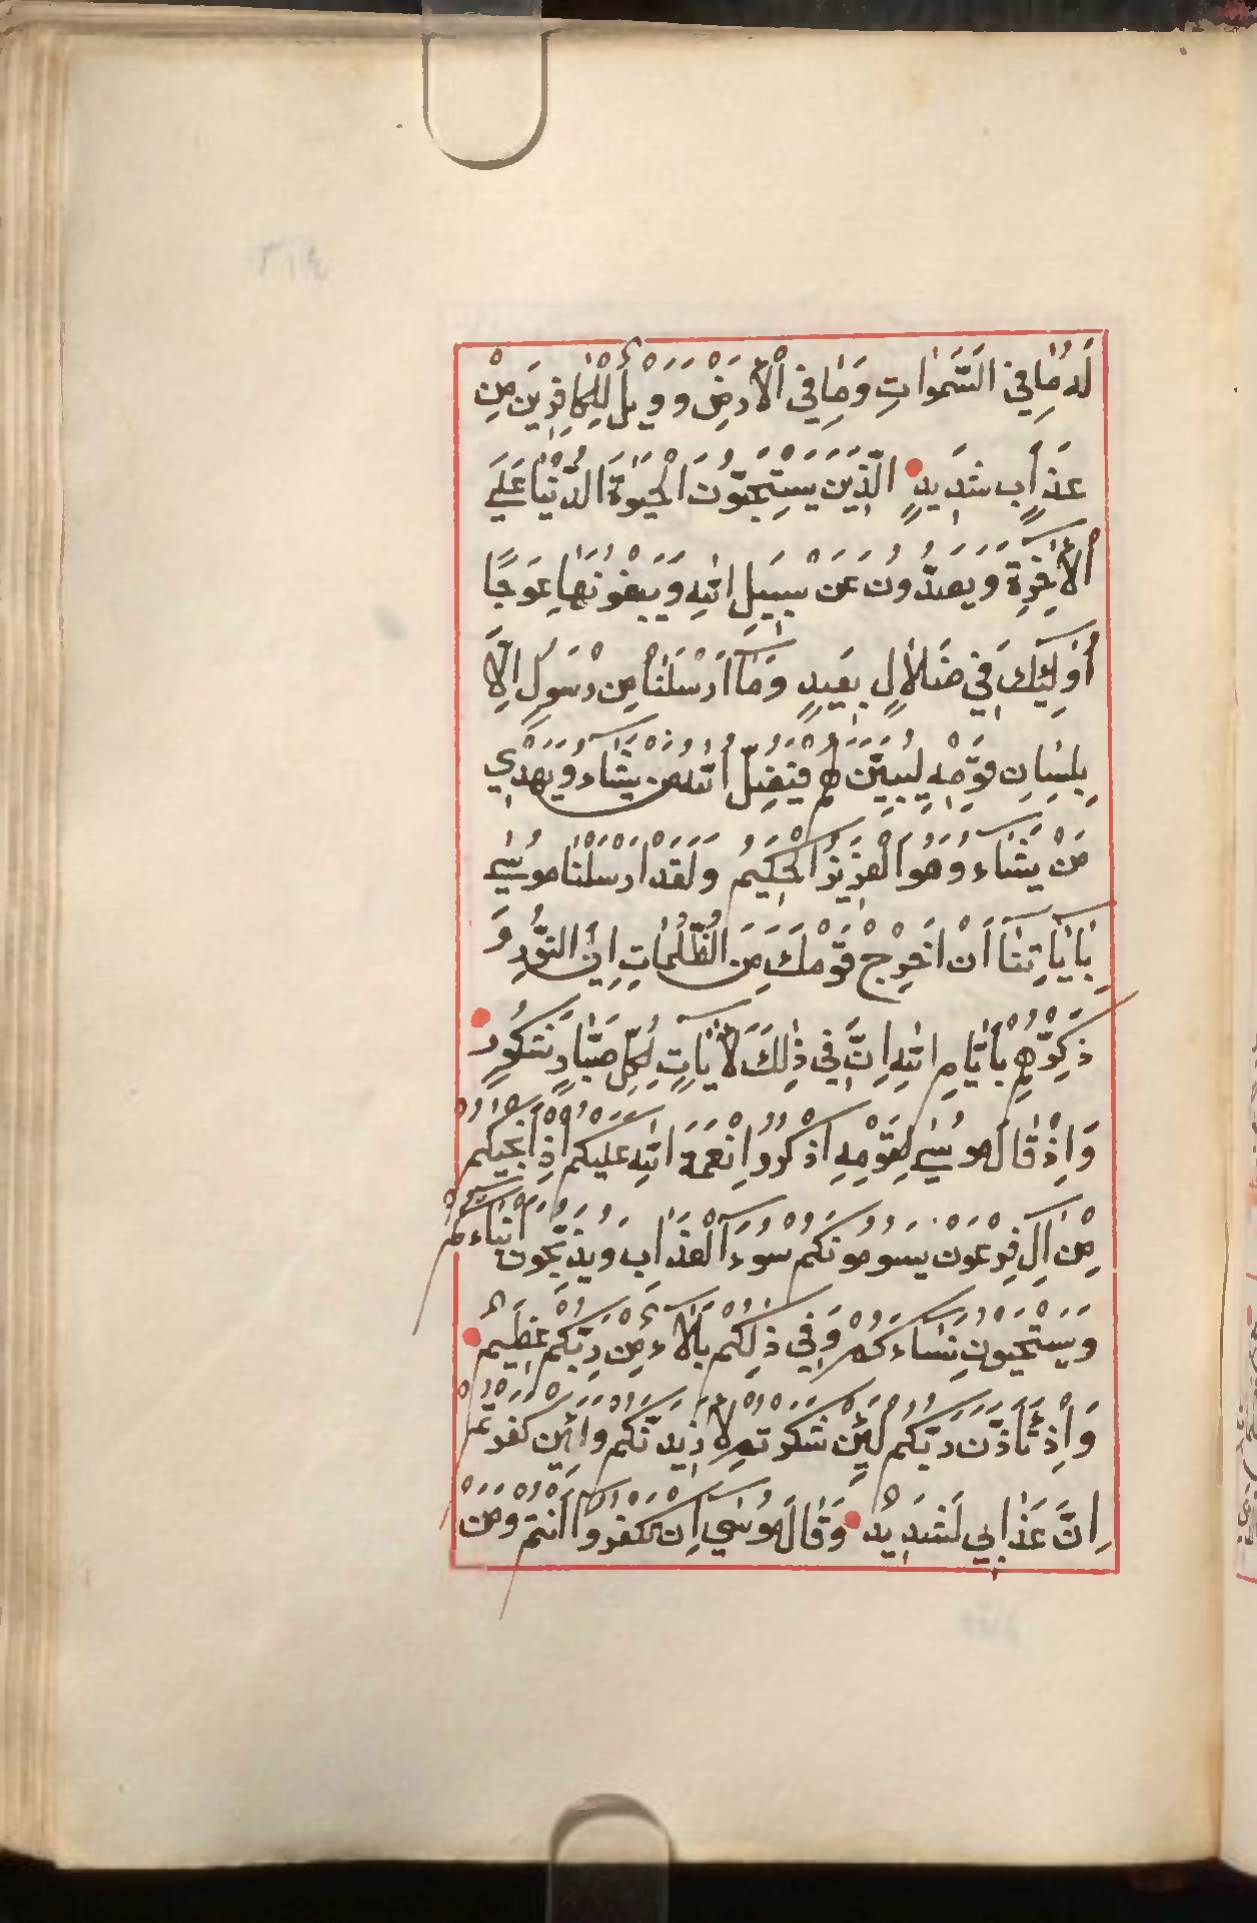 لَهُ مَا فِي السَّمٰوَاتِ وَمَا فِي الْأَرْضِ وَوَيْلٌ لِلْكَافِرِينَ مِنْ
عَذَابٍ شَدِيدٍ الَّذِينَ يَسْتَحِبُّونَ الْحَيٰوةَ الدُّنْيَا عَلَى
الْأٰخِرَةِ وَيَصُدُّونَ عَنْ سَبِيلِ اللهِ وَيَبْغُونَهَا عِوَجًا
أُولٰئِكَ فِي ضَلَالٍ بَعِيدٍ وَمَا أَرْسَلْنَا مِنْ رَسُولٍ إِلَّا
بِلِسَانِ قَوْمِهِ لِيُبَيِّنَ لَهُمْ فَيُضِلُّ اللهُ مَنْ يَشَاءُ وَيَهْدِي
مَنْ يَشَاءُ وَهُوَ الْعَزِيزُ الْحَكِيمُ وَلَقَدْ أَرْسَلْنَا مُوسٰى
بِاٰيَاتِنَا أَنْ أَخْرِجْ قَوْمَكَ مِنَ الظُّلُمَاتِ إِلَى النُّورِ وَ
ذَكِّرْهُمْ بِأَيَّامِ اللهِ إِنَّ فِي ذٰلِكَ لَأٰيَاتٍ لِكُلِّ صَبَّارٍ شَكُورٍ
وَإِذْ قَالَ مُوسٰى لِقَوْمِهِ اذْكُرُوا نِعْمَةَ اللهِ عَلَيْكُمْ إِذْ أَنْجٰيكُمْ
مِنْ اٰلِ فِرْعَوْنَ يَسُومُونَكُمْ سُوءَ الْعَذَابِ وَيُذَبِّحُونَ أَبْنَاءَكُمْ
وَيَسْتَحْيُونَ نِسَاءَكُمْ وَفِي ذٰلِكُمْ بَلَاءٌ مِنْ رَبِّكُمْ عَظِيمٌ
وَإِذْ تَأَذَّنَ رَبُّكُمْ لَئِنْ شَكَرْتُمْ لَأَزِيدَنَّكُمْ وَلَئِنْ كَفَرْتُمْ
إِنَّ عَذَابِي لَشَدِيدٌ وَقَالَ مُوسٰى إِنْ تَكْفُرُوا أَنْتُمْ وَمَنْ